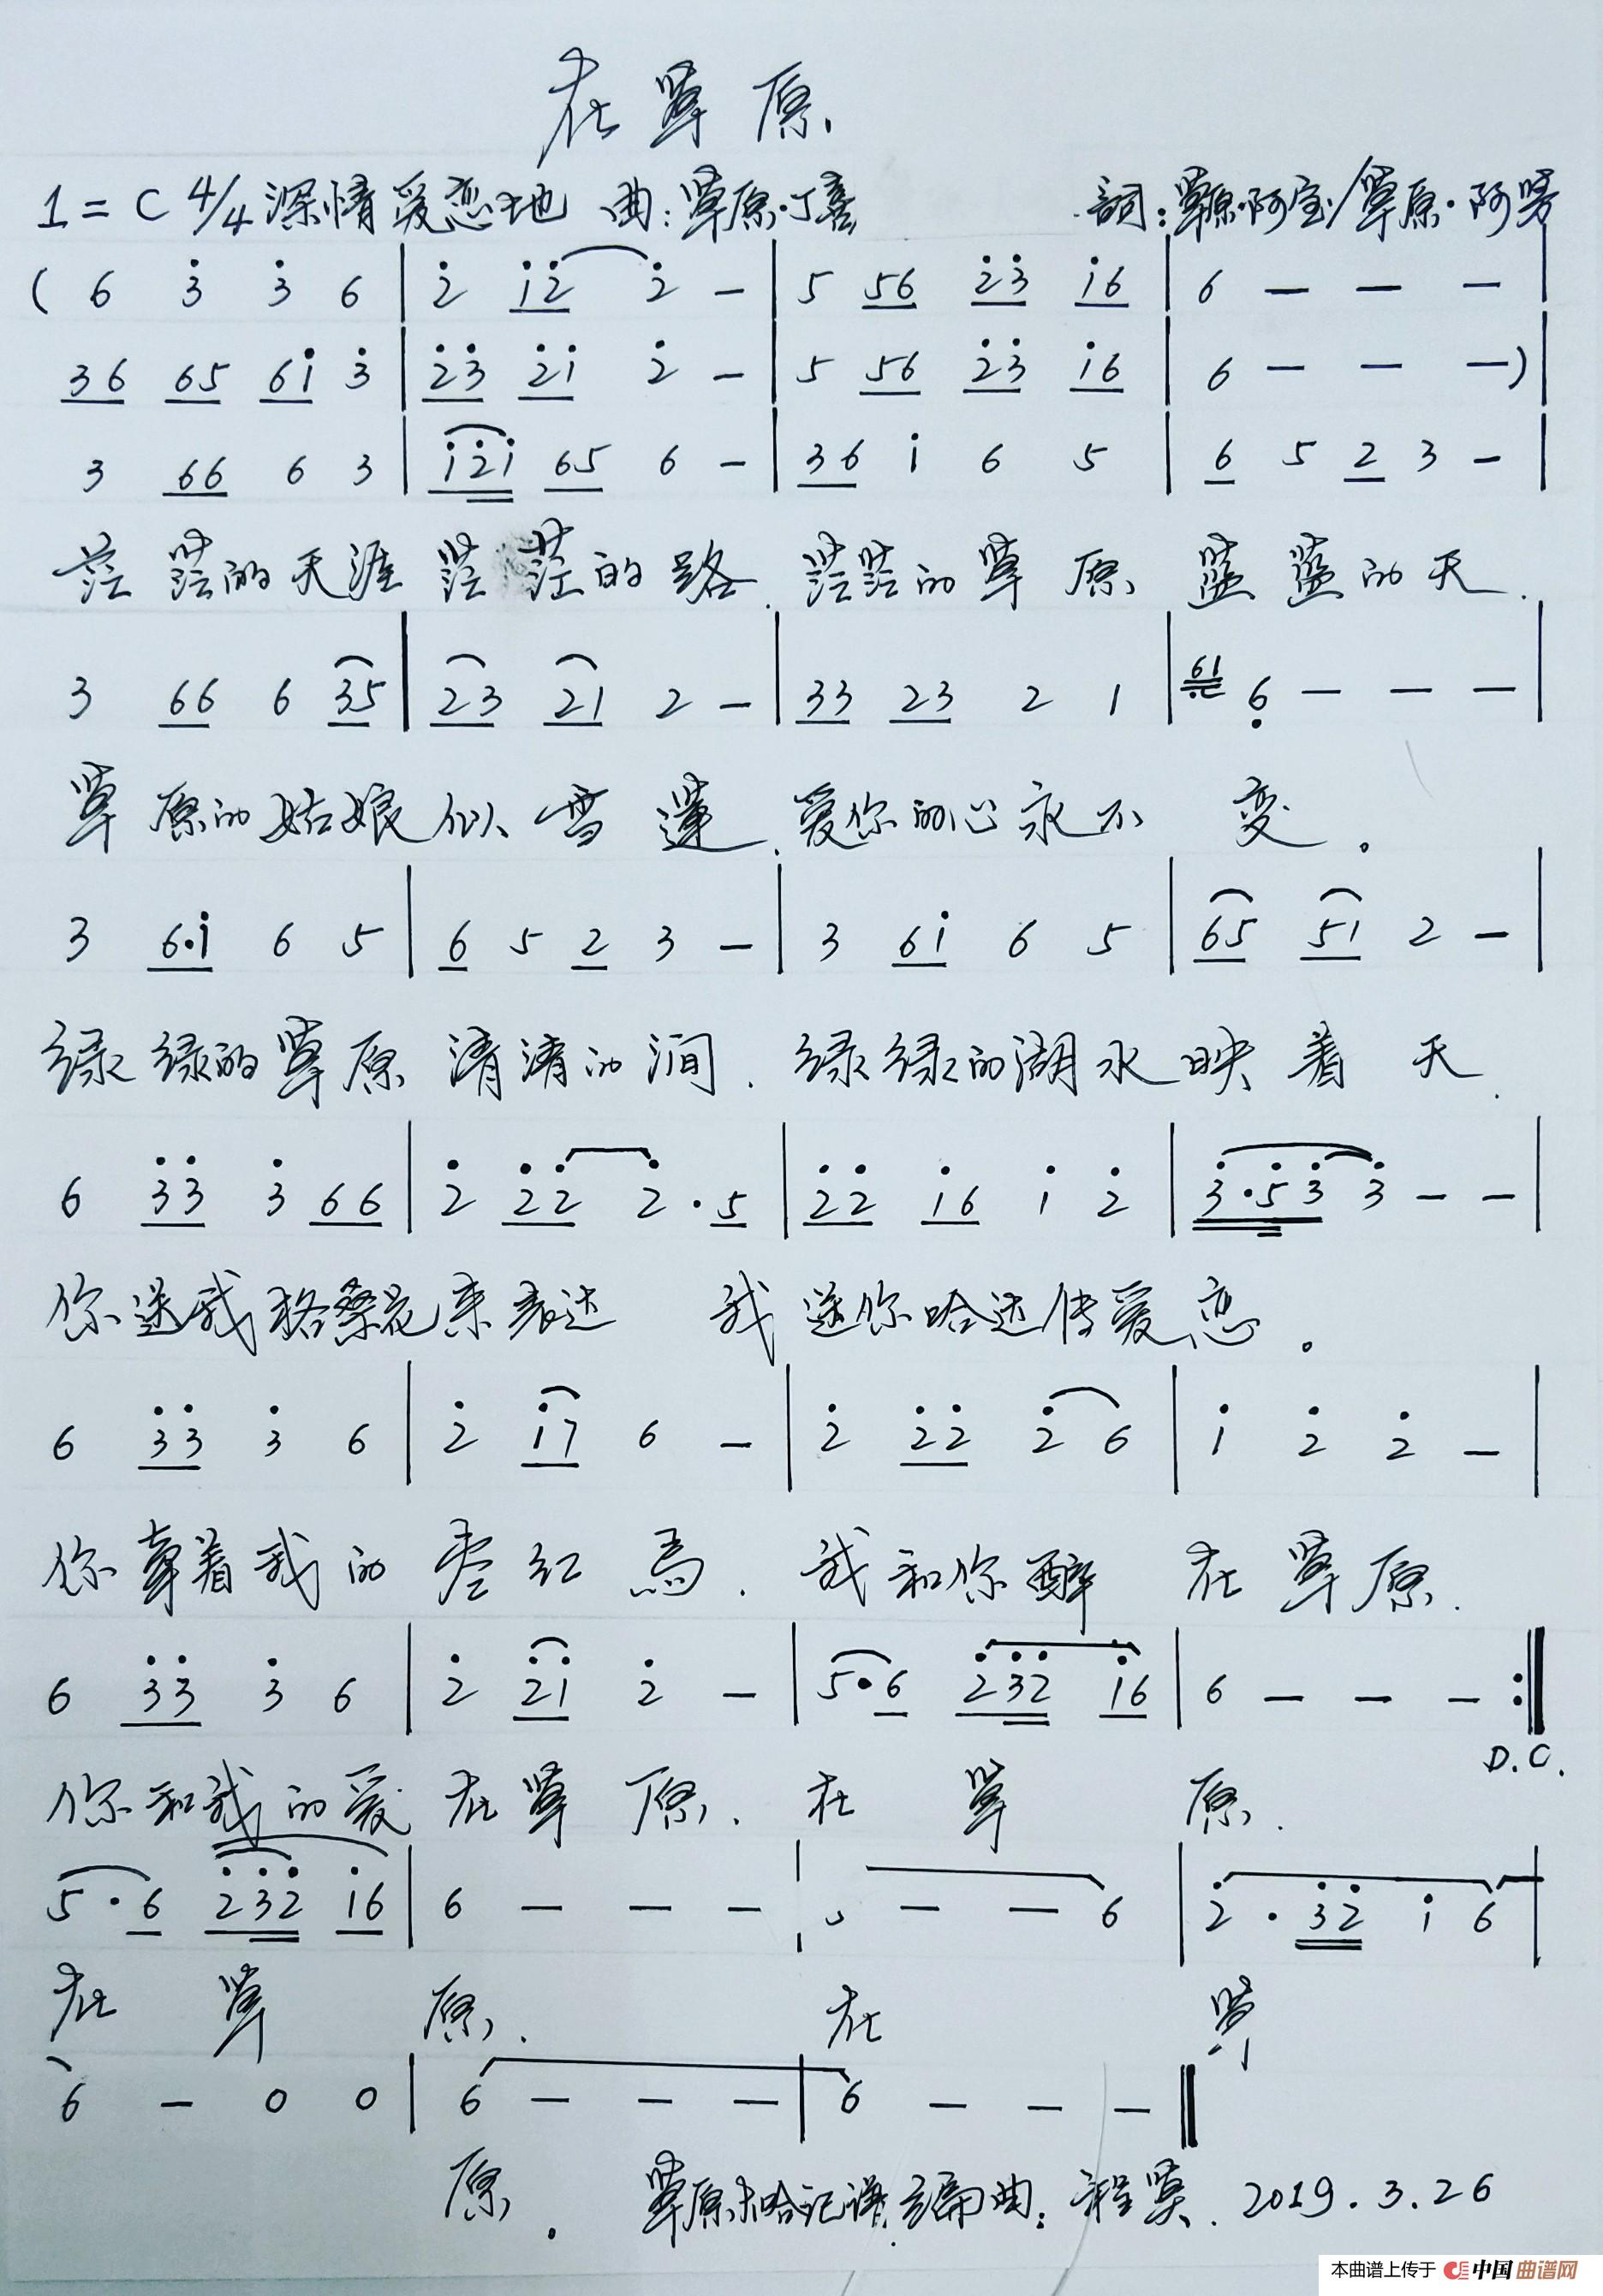 在草原
1=C 4/4 深情爱恋地 曲:草原·丁喜 詞:草原·阿宝/草原·阿雯
( 6 3̇ 3̇ 6 | 2̇ 1̇2̇ 2̇ — | 5 56 2̇3̇ 1̇6 | 6 — — — |
36 65 61̇ 3̇ | 2̇3̇ 2̇1̇ 2̇ — | 5 56 2̇3̇ 1̇6 | 6 — — — ) |
3 66 6 3 | 1̇2̇1̇ 65 6 — | 36 1̇ 6 5 | 6 5 2 3 — |
茫茫的天涯茫茫的路.茫茫的草原蓝蓝的天.
3 66 6 35 | 23 21 2 — | 33 23 2 1 | 61 6̣ — — — |
草原的姑娘似雪蓮.爱你的心永不变。
3 6·1̇ 6 5 | 6 5 2 3 — | 3 61̇ 6 5 | 65 51 2 — |
绿绿的草原清清的涧.绿绿的湖水映着天.
6 3̇3̇ 3̇ 66 | 2̇ 2̇2̇ 2̇·5 | 2̇2̇ 1̇6 1̇ 2̇ | 3̇·5̇3̇ 3̇ — — |
你送我格桑花来表达 我送你哈达传爱恋。
6 3̇3̇ 3̇ 6 | 2̇ 1̇7 6 — | 2̇ 2̇2̇ 2̇ 6 | 1̇ 2̇ 2̇ — |
你牵着我的枣红馬.我和你醉在草原.
6 3̇3̇ 3̇ 6 | 2̇ 2̇1̇ 2̇ — | 5·6 2̇3̇2̇ 1̇6 | 6 — — — :‖
D.C.
你和我的爱在草原.在草原.
5·6 2̇3̇2̇ 1̇6 | 6 — — — | — — 6 | 2̇·3̇2̇ 1̇ 6 |
在草原.在草
6 — 0 0 | 6 — — — | 6 — — — ‖
原. 草原木哈记谱.编曲:程昊. 2019.3.26
本曲谱上传于 中国曲谱网